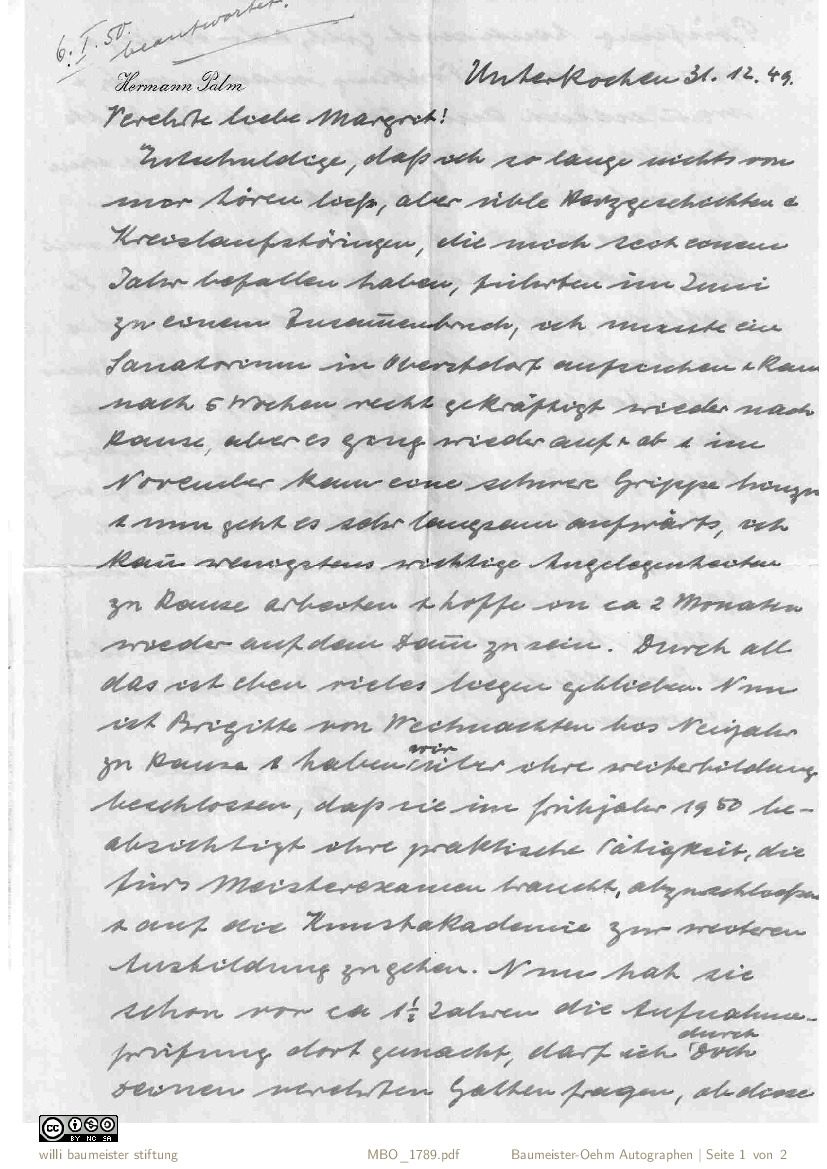 6. I. 50. beantwortet.
Hermann Palm
Unterkochen 31. 12. 49.
Verehrte liebe Margrit!
Entschuldige, daß ich so lange nichts von
mir hören ließ, aber üble Herzgeschichten &
Kreislaufstöringen, die mich seit einem
Jahr befallen haben, führten im Juni
zu einem Zusam̄enbruch, ich musste ein
Sanatorium in Oberstdorf aufsuchen & kam
nach 6 Wochen recht gekräftigt wieder nach
Hause, aber es ging wieder auf & ab & im
November kam eine schwere Grippe hinzu
& nun geht es sehr langsam aufwärts, ich
kan̄ wenigstens wichtige Angelegenheiten
zu Hause arbeiten & hoffe in ca 2 Monaten
wieder auf dem Dam̄ zu sein. Durch all
das ist eben vieles liegen geblieben. Nun
ist Brigitte von Weihnachten bis Neujahr
zu Hause & haben wir über ihre weiterbildung
beschlossen, daß sie im frühjahr 1950 be-
absichtigt ihre praktische Tätigkeit, die
fürs Meisterexamen braucht, abzuschließen
& auf die Kunstakademie zur weiteren
Ausbildung zu gehen. Nun hat sie
schon vor ca 1½ Jahren die Aufnahme-
prüfung dort gemacht, darf ich durch Dich
Deinen verehrten Gatten fragen, ob diese
willi baumeister stiftung
MBO_1789.pdf
Baumeister-Oehm Autographen | Seite 1 von 2
CC BY NC SA